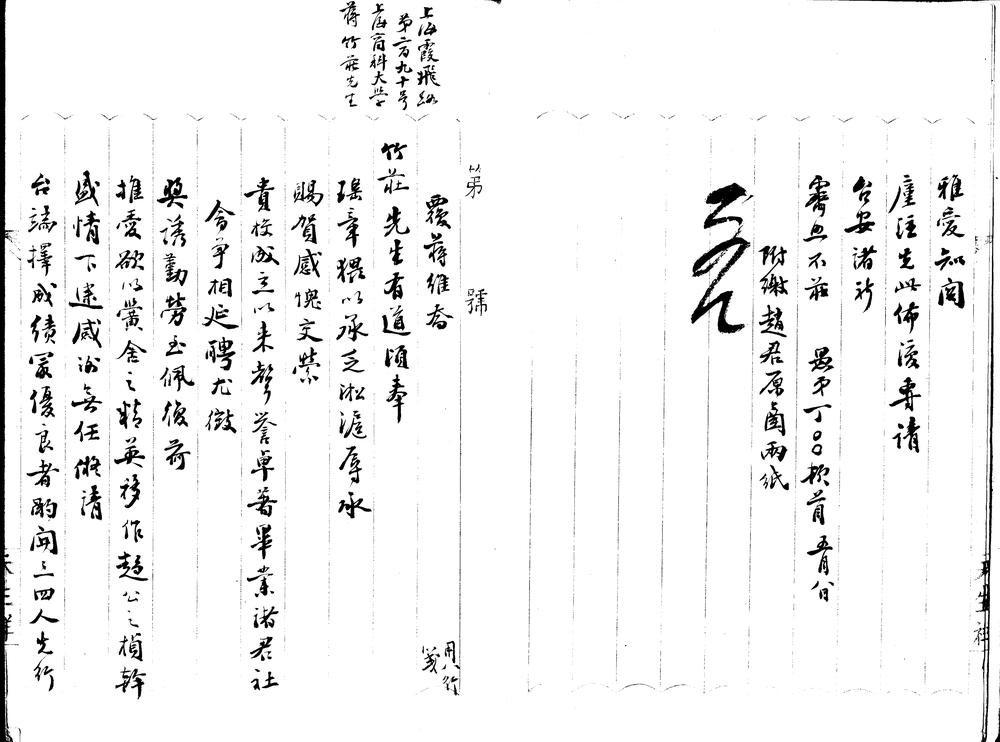 雅愛知関
廑注先此佈復專請
台安諸祈
霽照不莊 愚弟丁○○頓首 五月 日
附繳趙君原函兩紙
第 號
上海霞飛路
第二百九十号
上海商科大学
蔣竹莊先生
覆蔣維喬
用八行箋
竹莊先生有道頃奉
瑤章猥以承乏淞滬辱承
賜賀感愧交縈
貴校成立以來聲譽卓著畢業諸君社
會爭相延聘尤徵
奬誘勤勞至佩後荷
推愛欲以黌舍之精英移作趙公之楨幹
盛情下逮感謝無任擬請
台端擇成績最優良者酌開三四人先行